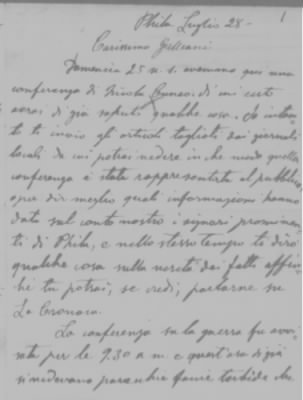 1
Phila Luglio 28 -
Carissimo Galleani
Domenica 25 u. s. avemmo qui una
conferenza di Nicola Cuneo. di cui
avrai di già saputo qualche cosa. Io intan
to ti invio gli articoli tagliati dai giornali
locali da cui potrai vedere in che modo quella
conferenza è stata rappresentata al pubblico
o per dir meglio quali informazioni hanno
dato sul conto nostro i signori prominen
ti di Phila, e nello stesso tempo ti dirò
qualche cosa sulla verità dei fatti affin
chè tu potrai, se credi, parlarne su
La Cronaca.
La conferenza su la guerra fu avvi
sata per le 9.30 a m. e quest'ora di già
si vedevano parecchie facce torbide che